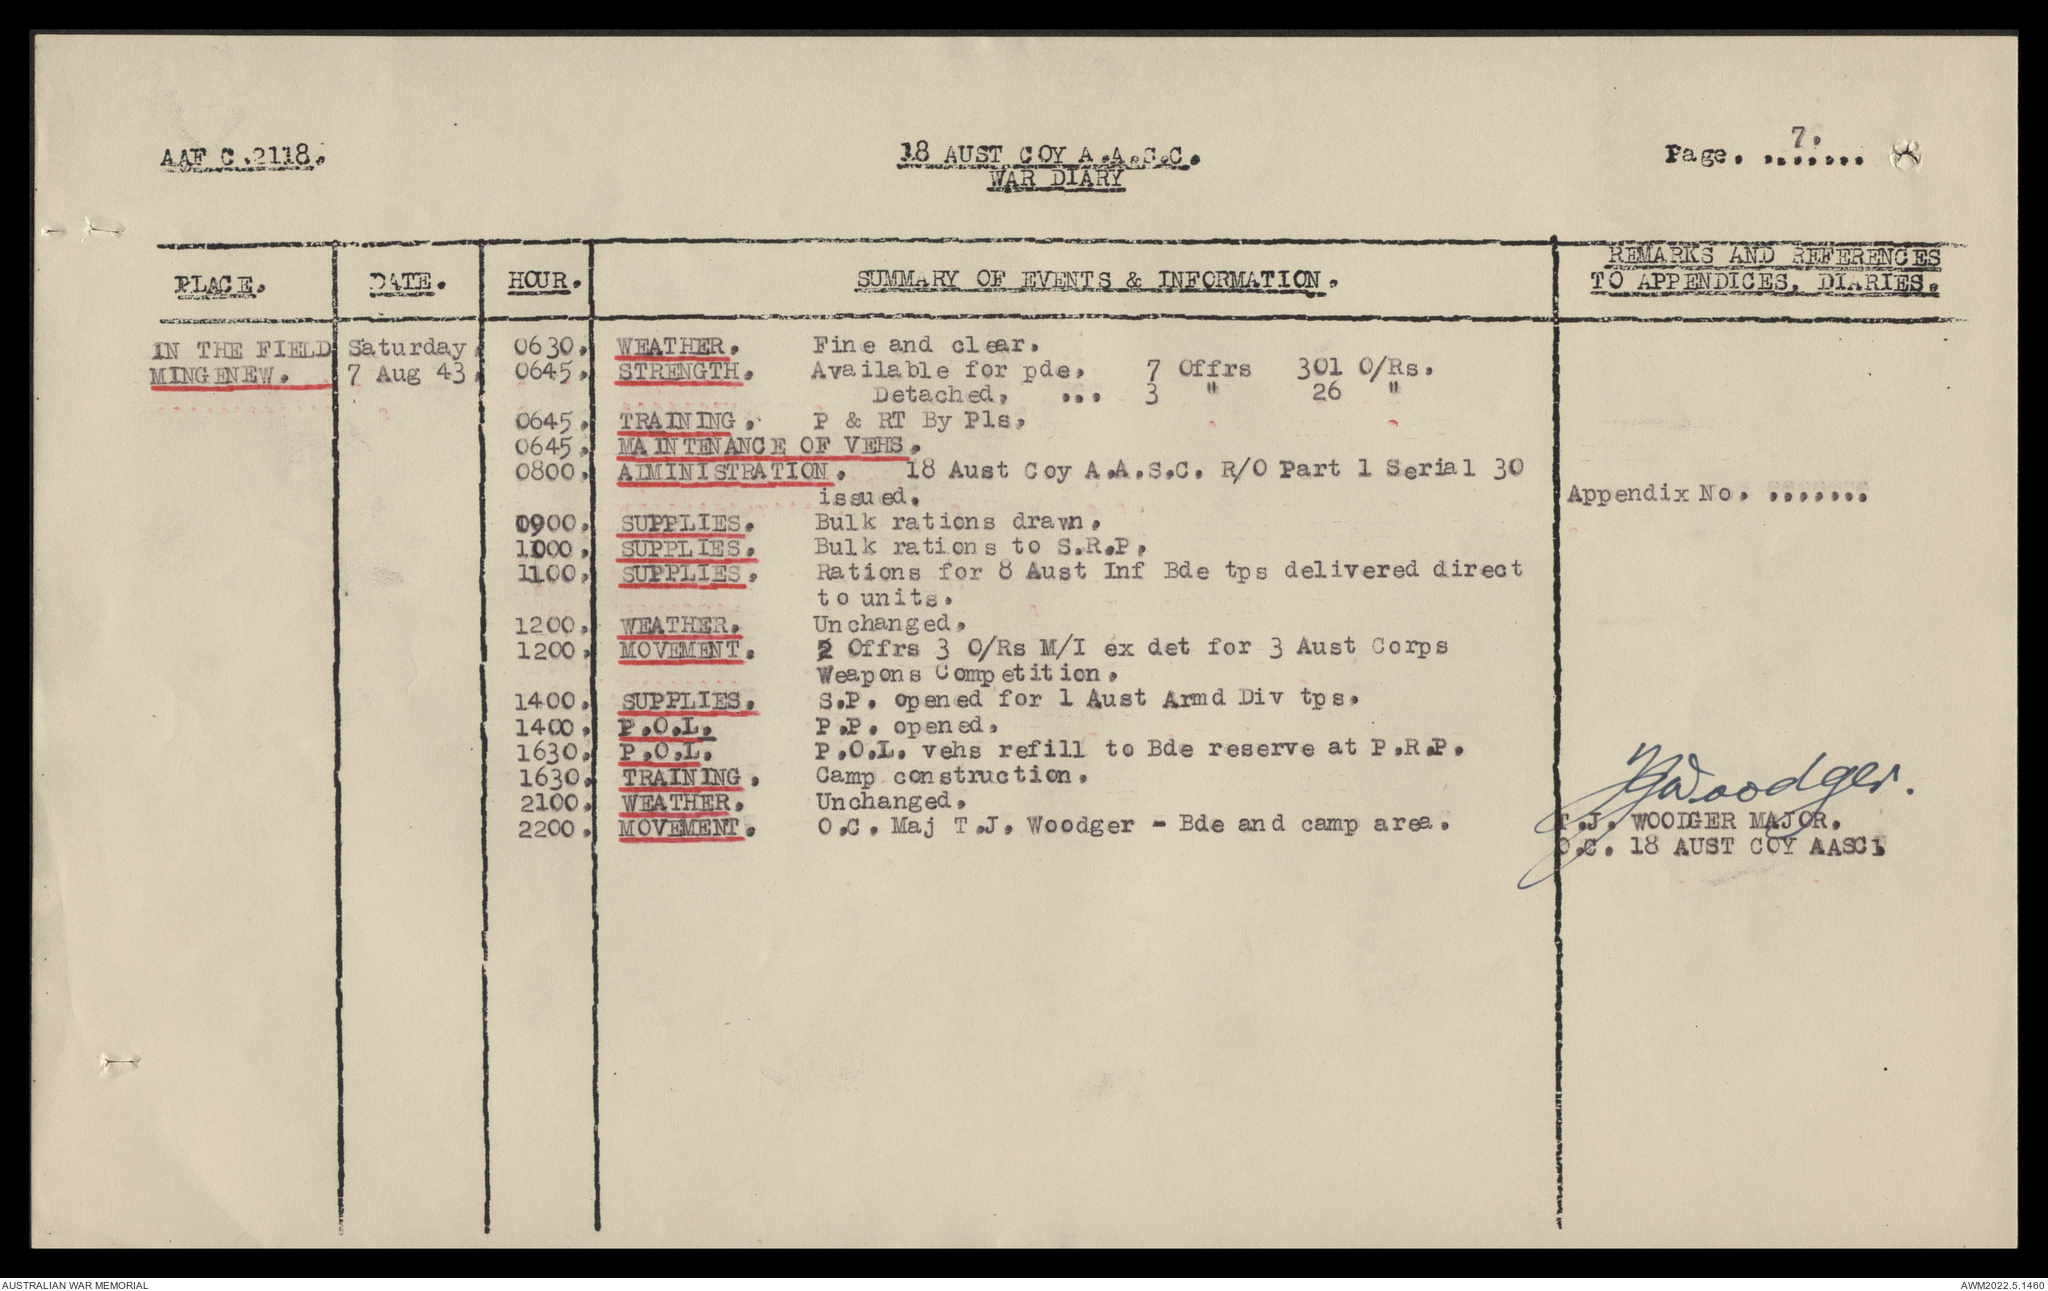 AAF C.2118.
18 AUST COY A.A.S.C.
WAR DIARY
Page. ....... 7.
PLACE. DATE. HOUR. SUMMARY OF EVENTS & INFORMATION. REMARKS AND REFERENCES
TO APPENDICES, DIARIES.
IN THE FIELD Saturday. 0630. WEATHER. Fine and clear.
MINGENEW. 7 Aug 43. 0645. STRENGTH. Available for pde. 7 Offrs 301 O/Rs.
Detached, ... 3 " 26 "
0645. TRAINING. P & RT By Pls.
0645. MAINTENANCE OF VEHS.
0800. ADMINISTRATION. 18 Aust Coy A.A.S.C. R/O Part 1 Serial 30
issued. Appendix No. .......
0900. SUPPLIES. Bulk rations drawn.
1000. SUPPLIES. Bulk rations to S.R.P.
1100. SUPPLIES. Rations for 8 Aust Inf Bde tps delivered direct
to units.
1200. WEATHER. Unchanged.
1200. MOVEMENT. 2 Offrs 3 O/Rs M/I ex det for 3 Aust Corps
Weapons Competition.
1400. SUPPLIES. S.P. opened for 1 Aust Armd Div tps.
1400. P.O.L. P.P. opened.
1630. P.O.L. P.O.L. vehs refill to Bde reserve at P.R.P.
1630. TRAINING. Camp construction.
2100. WEATHER. Unchanged.
2200. MOVEMENT. O.C. Maj T.J. Woodger - Bde and camp area.
TJWoodger.
T.J. WOODGER MAJOR.
O.C. 18 AUST COY AASC.
AUSTRALIAN WAR MEMORIAL
AWM2022.5.1460